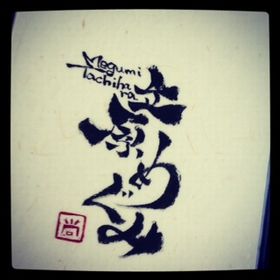 Megumi
Tachiha
ra
立原めぐみ
尚